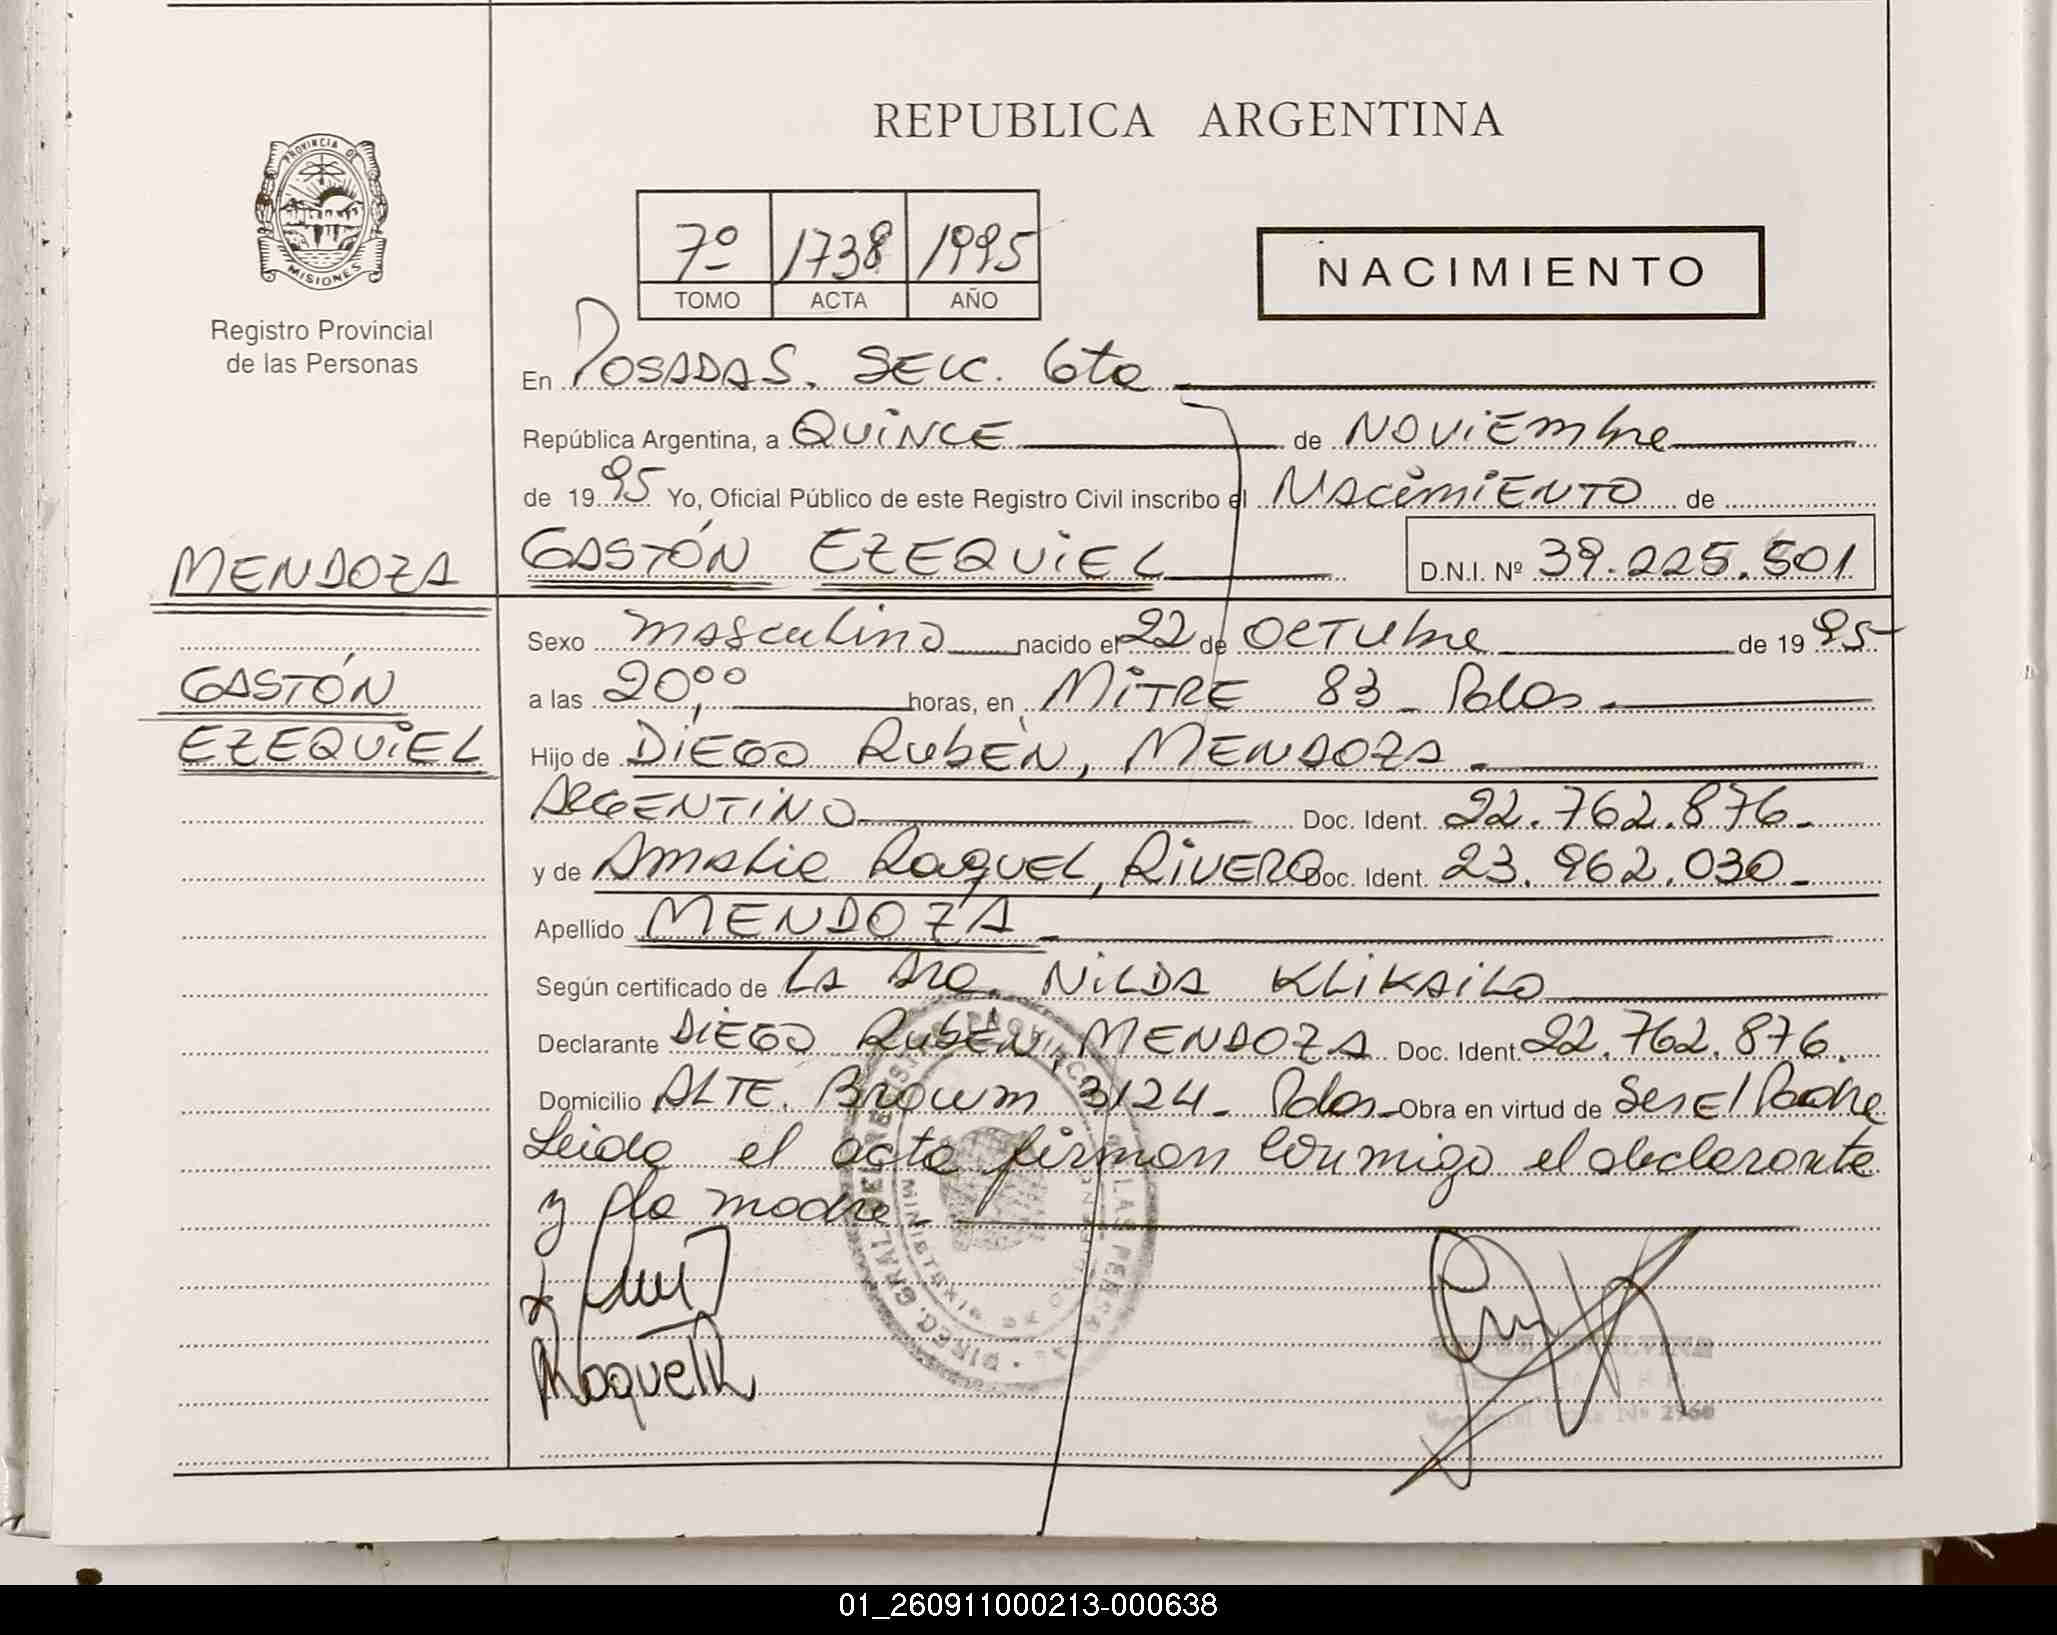 REPUBLICA ARGENTINA
PROVINCIA DE
MISIONES
Registro Provincial
de las Personas
7º 1738 1995
TOMO ACTA AÑO
NACIMIENTO
En POSADAS. SECC. 6ta
República Argentina, a QUiNCE de NOViEmbre
de 1995 Yo, Oficial Público de este Registro Civil inscribo el NACimiENTO de
MENDOZA
GASTÓN EZEQUiEL D.N.I. Nº 39.225.501
Sexo masculino nacido el 22 de OCTUbre de 1995
GASTÓN
EZEQUiEL
a las 20,00 horas, en MiTRE 83 - Pdas.
Hijo de DiEGO RubÉN, MENDOZA.
ARGENTiNO Doc. Ident. 22.762.876.-
y de Amalia RaquEL, RiVERO Doc. Ident. 23.962.030.-
Apellido MENDOZA.
Según certificado de LA Dra. NiLDA KLiKAiLO
Declarante DiEGO RubÉN, MENDOZA Doc. Ident. 22.762.876.
Domicilio ALTE. Brown 3124- Pdas.- Obra en virtud de Ser El Padre
Leida el acta firman conmigo el declarante
y la madre.-
Raquel R
Nº 2960
01_260911000213-000638